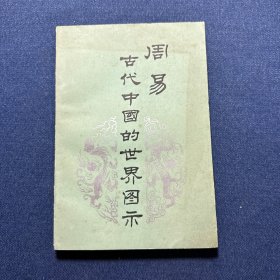 周易
古代中國的世界图示